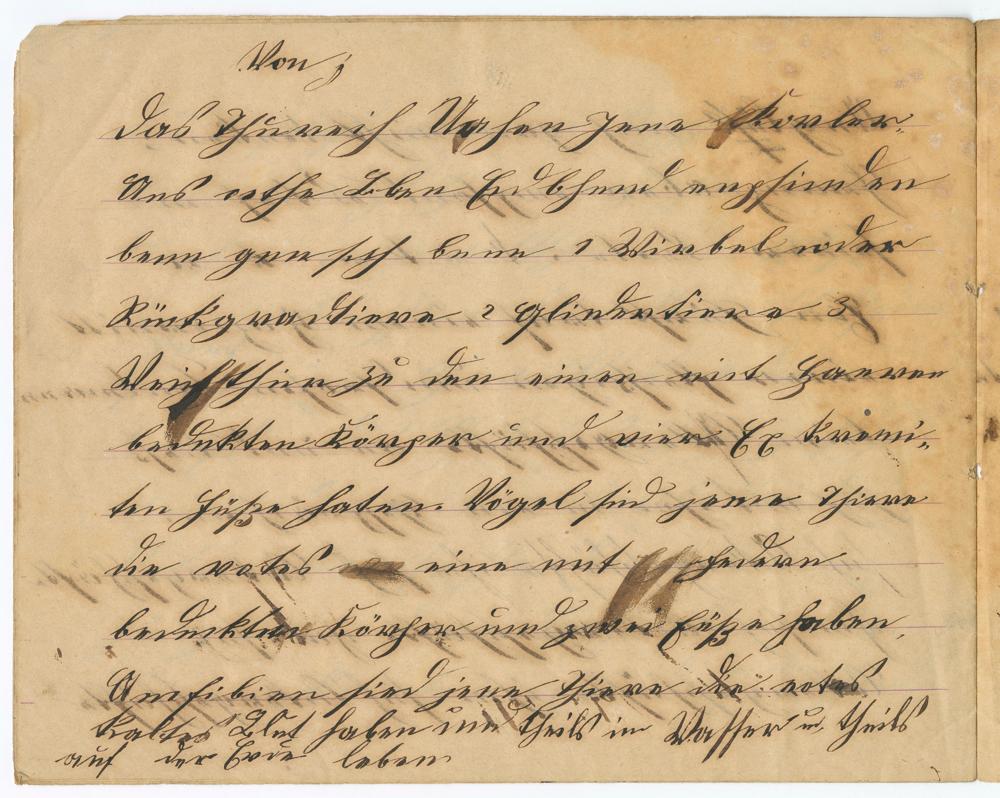 Von
das Thureich Uahen jene Körler.
Aus rothe Leben Endbhend empfinden
benn 1 Wirbel oder
Rückgradtiere 2 Gliedertiere 3
Weichthier zu den einen mit Haaren
bedekten Körper und vier Ex tremi„
ten Füße haten. Vögel sind jene Thiere
die rotes eine mit Federn
bedeckten Körper und zwei Füße haben,
Amfibien sind jene Thiere die rotes
Kaltes Blut haben und theils im Wasser u. theils
auf der Erde leben